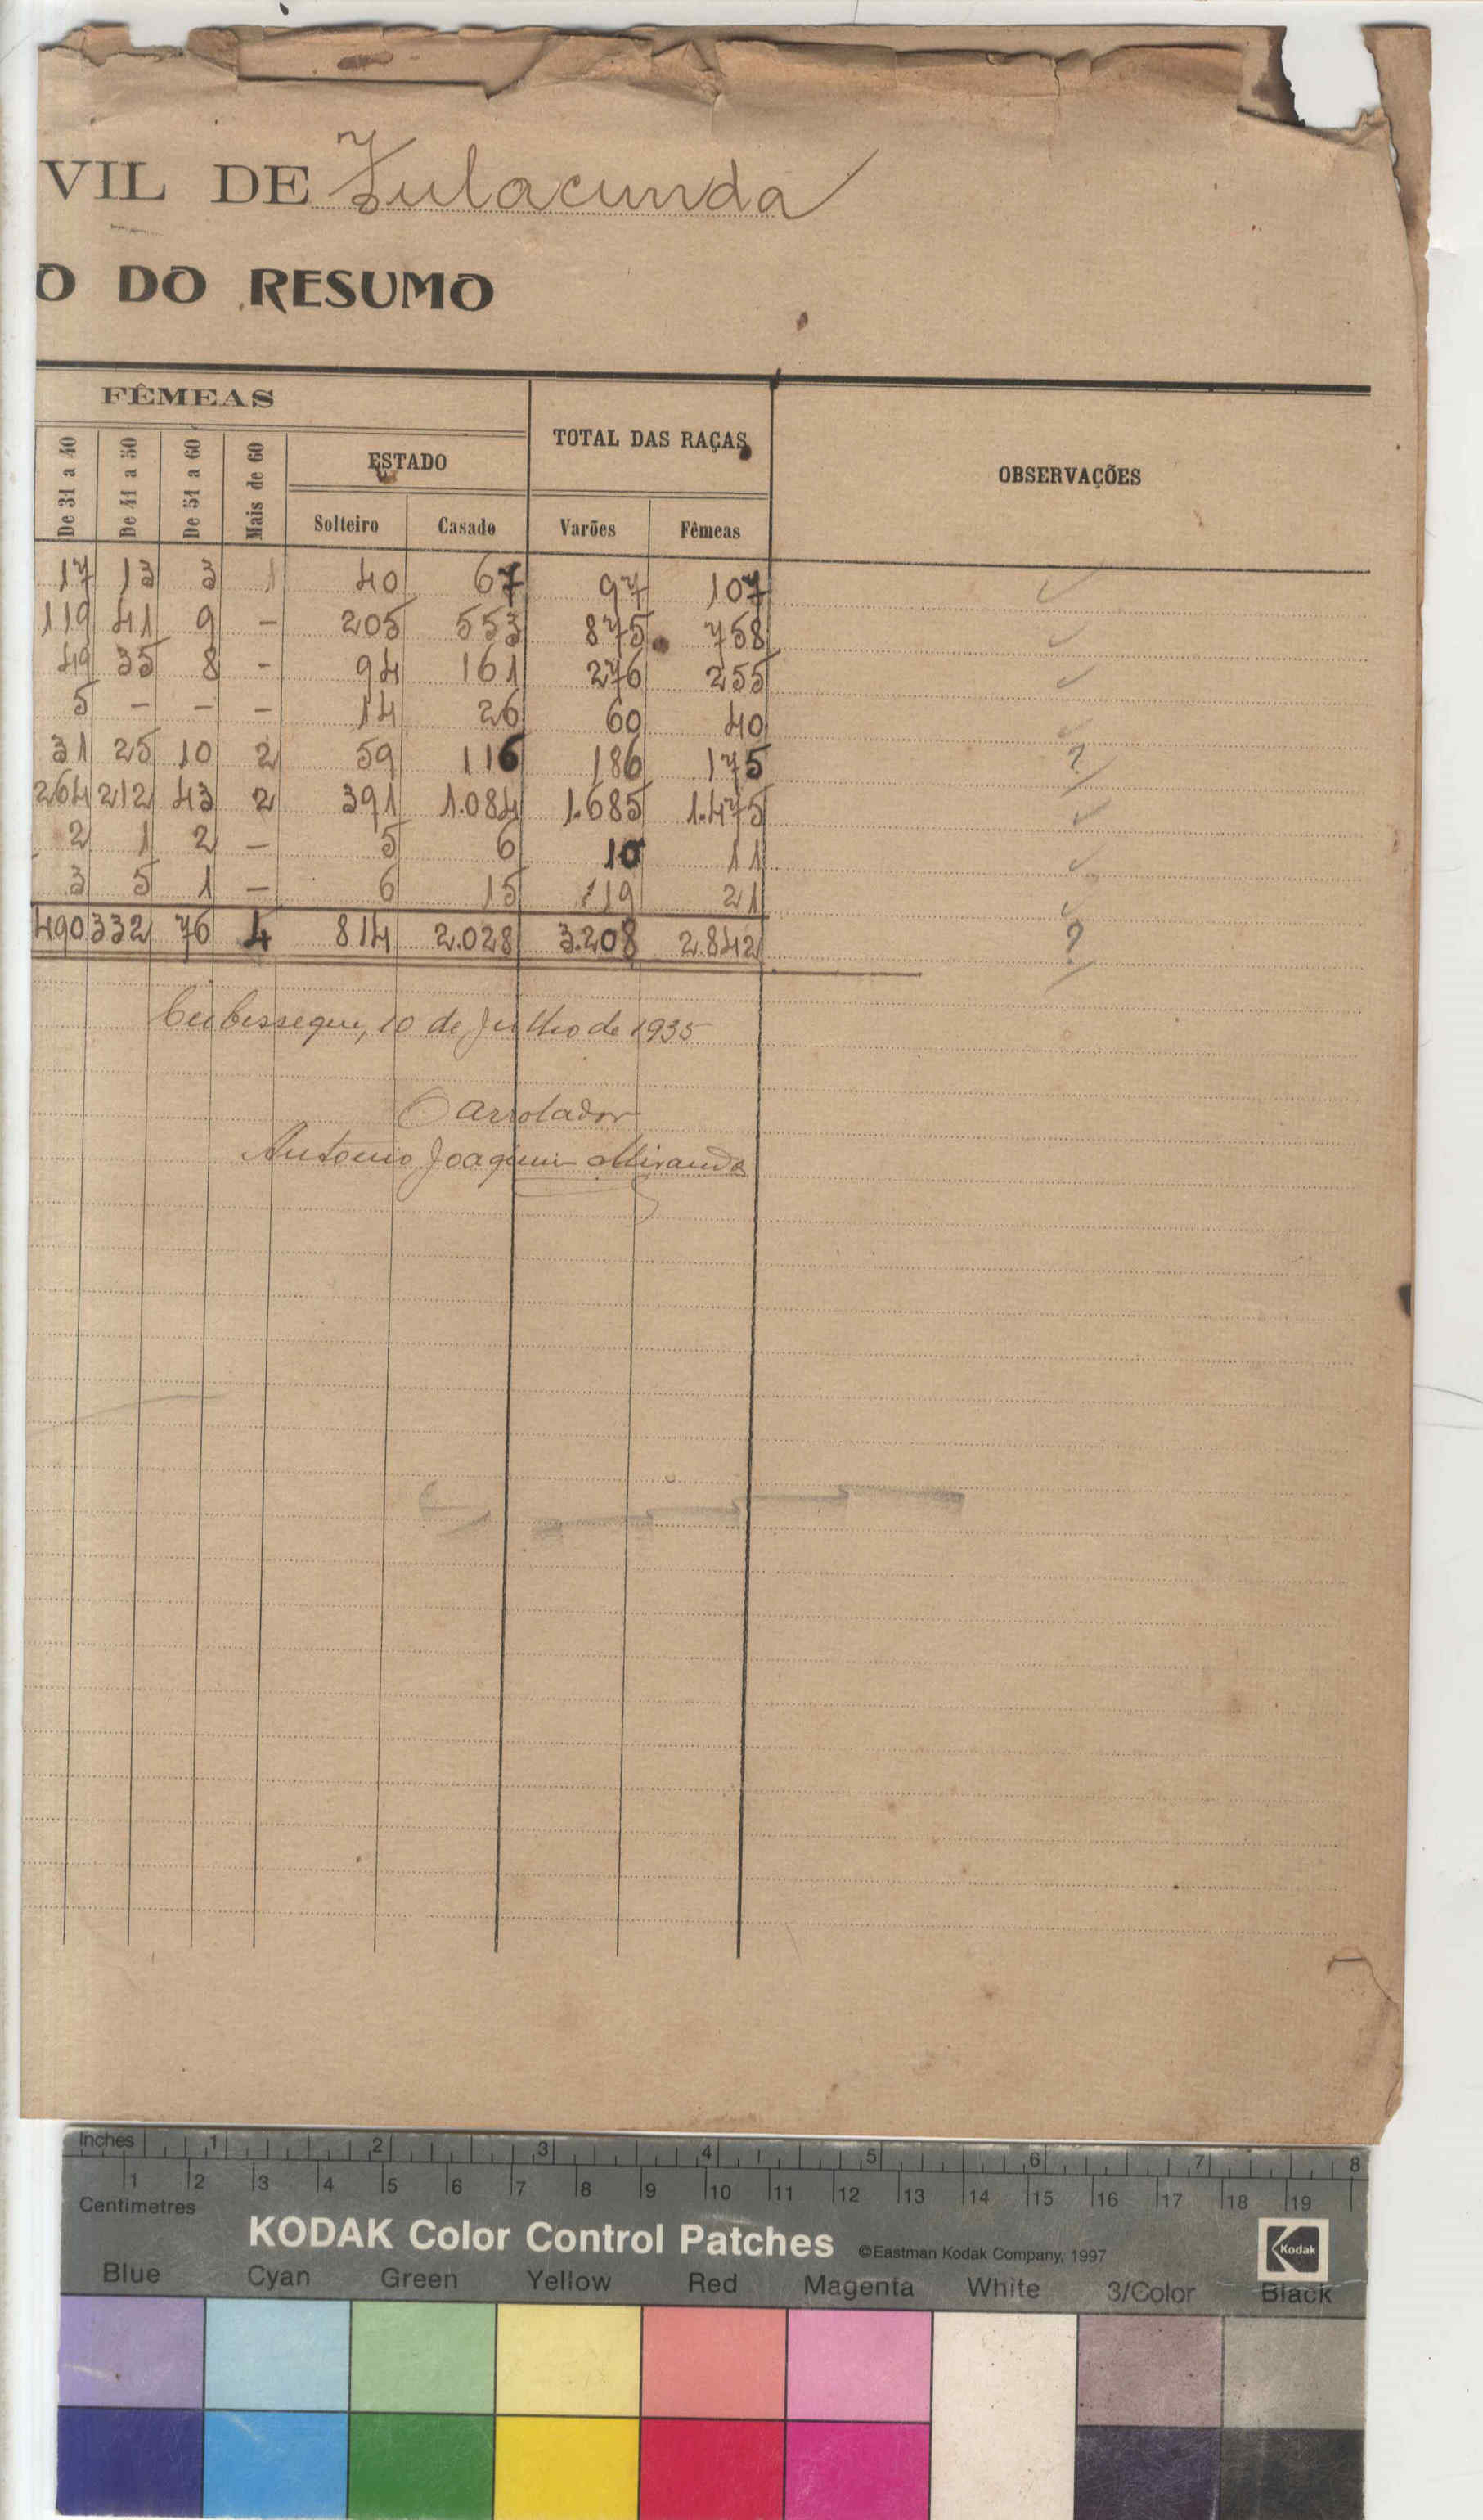 VIL DE Fulacunda
O DO RESUMO
FÊMEAS
TOTAL DAS RAÇAS
OBSERVAÇÕES
De 31 a 40 De 41 a 50 De 51 a 60 Mais de 60
ESTADO
Solteiro Casado Varões Fêmeas
17 13 3 1 40 67 97 107
119 41 9 - 205 553 875 758
49 35 8 - 94 161 276 255
5 - - - 14 26 60 40
31 25 10 2 59 116 186 175 ?
264 212 43 2 391 1.084 1.685 1.475
2 1 2 - 5 6 10 11
3 5 1 - 6 15 19 21
490 332 76 4 814 2.028 3.208 2.842 ?
10 de Julho de 1935
O arrolador
Antonio Joaquim Miranda
Inches 1 2 3 4 5 6 7 8
1 2 3 4 5 6 7 8 9 10 11 12 13 14 15 16 17 18 19
Centimetres
KODAK Color Control Patches ©Eastman Kodak Company, 1997 Kodak
Blue Cyan Green Yellow Red Magenta White 3/Color Black